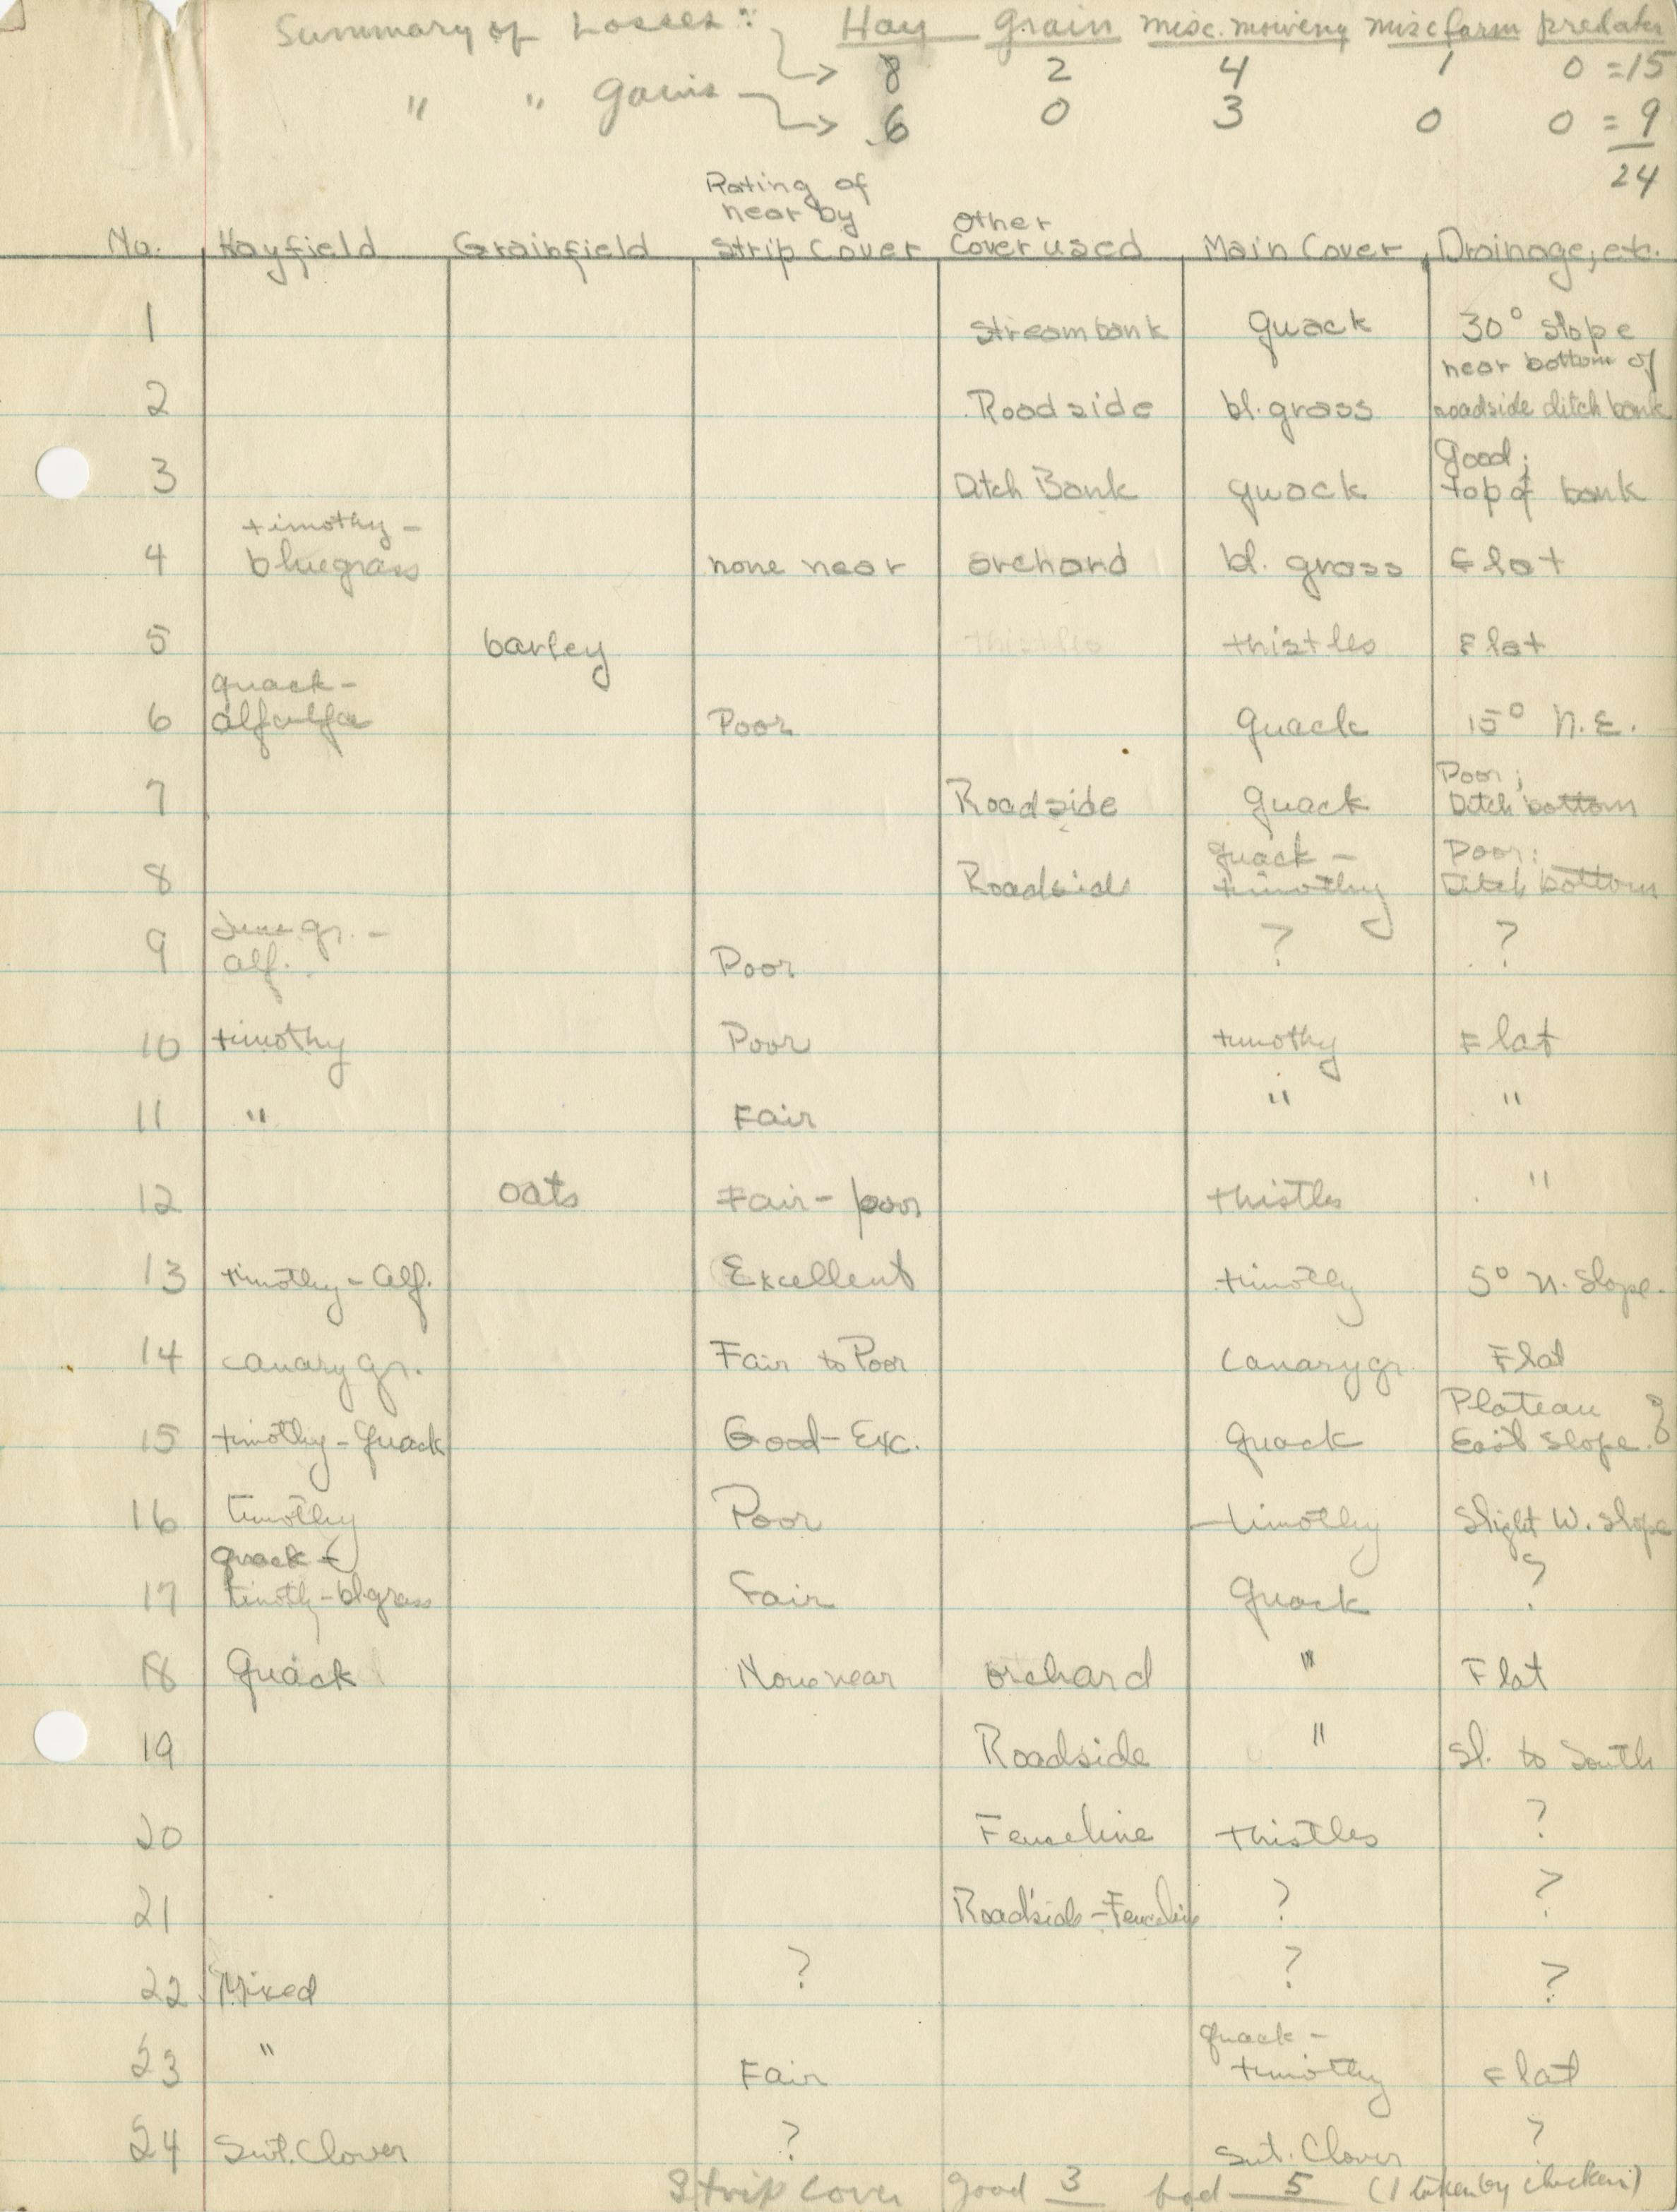 Summary of Losses: Hay Grain misc. mowing misc farm predator
8 2 4 1 0 = 15
" " Gains 6 0 3 0 0 = 9
24
No. Hayfield Grainfield Rating of near by Strip Cover Other Cover used Main Cover Drainage, etc.
1 Streambank quack 30° slope
2 Roadside bl. grass near bottom of roadside ditch bank
3 Ditch Bank quack Good; top of bank
4 timothy - bluegrass none near orchard bl. grass Flat
5 barley thistles thistles Flat
6 quack - alfalfa Poor quack 15° N.E.
7 Roadside quack Poor; Ditch bottom
8 Roadside quack - timothy Poor; Ditch bottom
9 June gr. - alf. Poor ? ?
10 timothy Poor timothy Flat
11 " Fair " "
12 oats Fair - poor thistles "
13 timothy - alf. Excellent timothy 5° N. Slope.
14 canary gr. Fair to Poor Canary gr. Flat
15 timothy - quack Good - Exc. quack Plateau & East slope.
16 timothy Poor timothy Slight W. slope
17 quack - timothy - bl. grass Fair quack ?
18 quack None near orchard " Flat
19 Roadside " Sl. to South
20 Fenceline Thistles ?
21 Roadside - Fenceline ? ?
22 Mixed ? ? ?
23 " Fair quack - timothy Flat
24 Swt. Clover ? Swt. Clover ?
Strip cover good 3 bad 5 (1 taken by chicken)